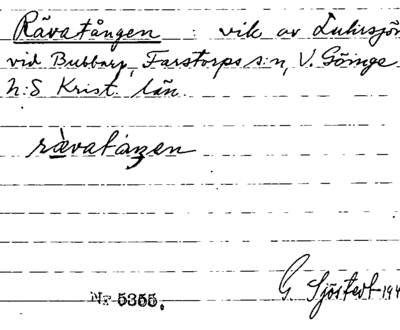 Råvatången : vik av Luhrsjön
vid Bubbarp, Farstorps s:n, V. Göinge
h:d Krist. län.
ràvatáŋen
Nr 5355.
G. Sjöstedt 194